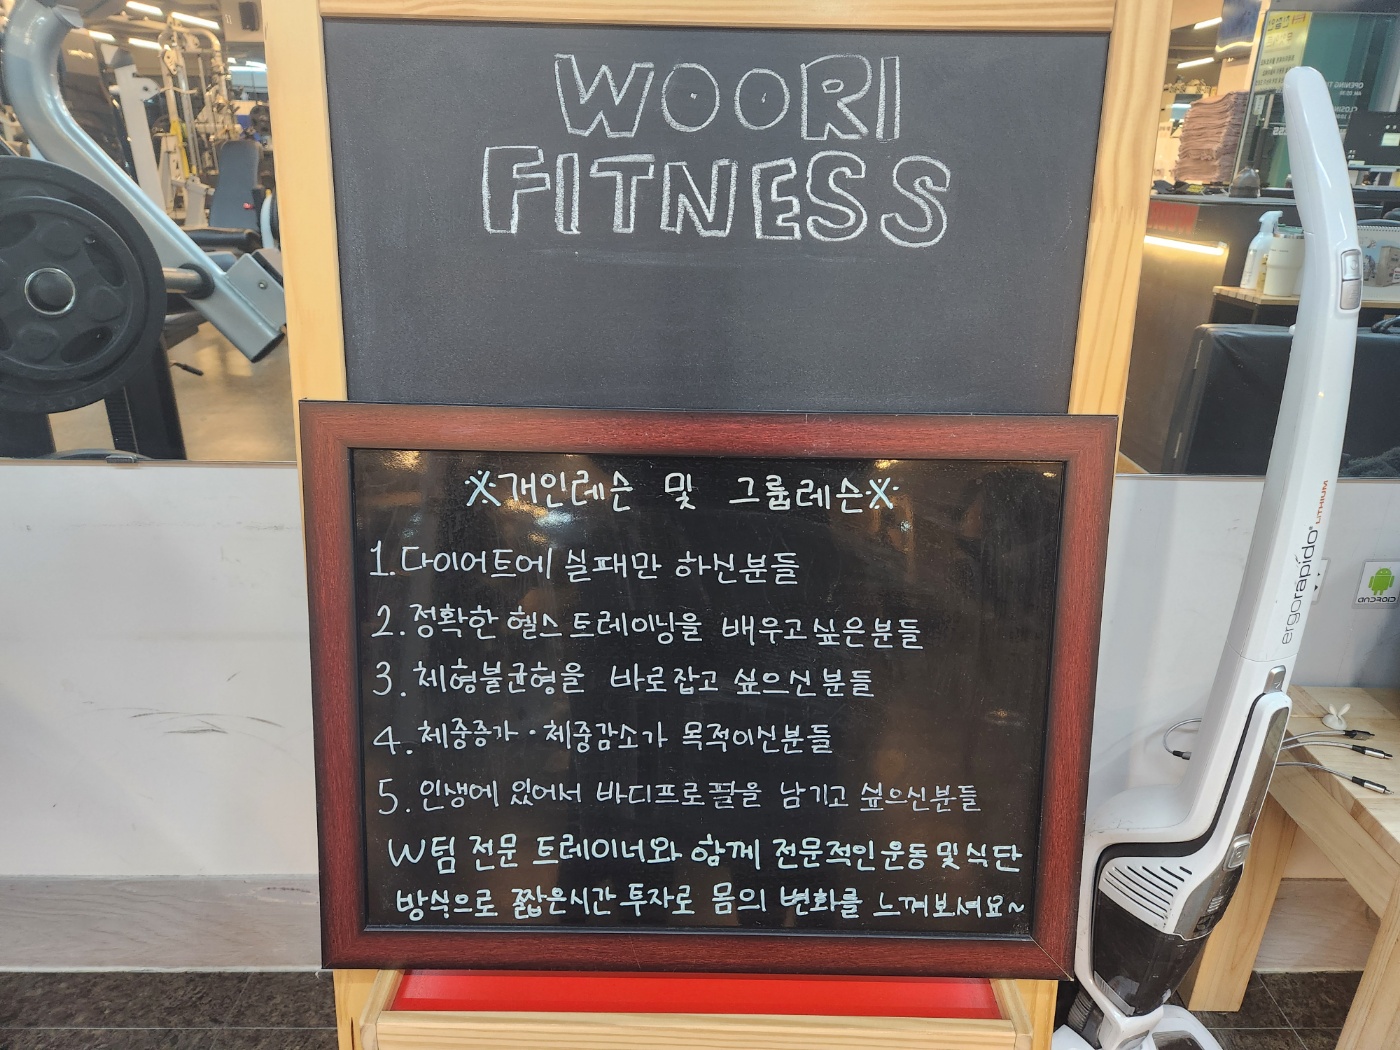 WOORI
FITNESS
※개인레슨 및 그룹레슨※
1. 다이어트에 실패만 하신분들
2. 정확한 헬스 트레이닝을 배우고싶은분들
3. 체형불균형을 바로잡고 싶으신분들
4. 체중증가·체중감소가 목적이신분들
5. 인생에 있어서 바디프로필을 남기고 싶으신분들
W팀 전문 트레이너와 함께 전문적인운동및식단
방식으로 짧은시간투자로 몸의 변화를 느껴보셔요~
ergorapido®
LITHIUM
ANDROID